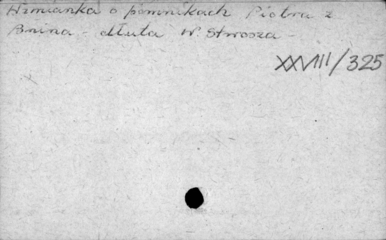 Wzmianka o pomnikach Piotra z
Bnina - dłuta W. Stwosza -
XXVIII/325